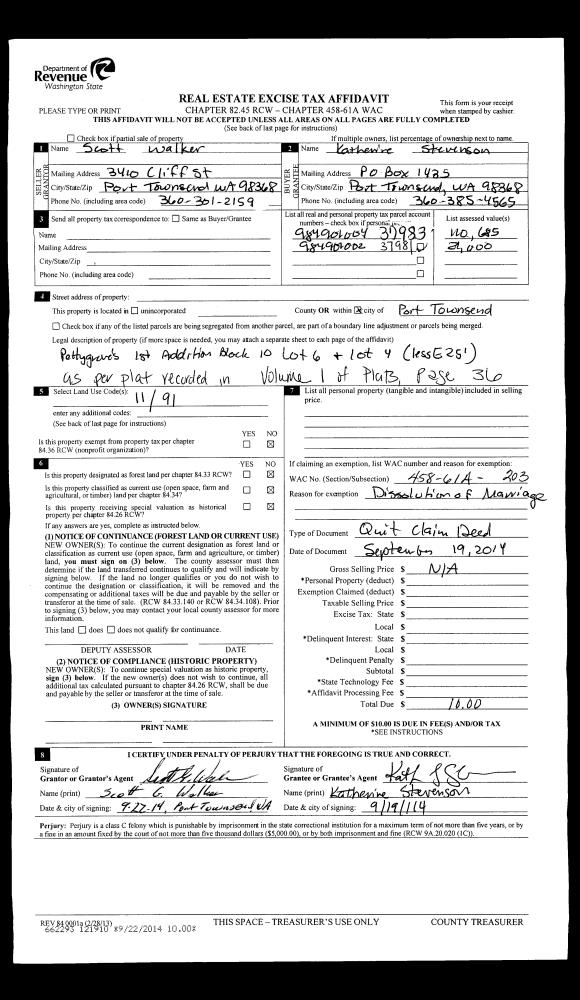 Department of
Revenue
Washington State
REAL ESTATE EXCISE TAX AFFIDAVIT
This form is your receipt
PLEASE TYPE OR PRINT CHAPTER 82.45 RCW – CHAPTER 458-61A WAC when stamped by cashier.
THIS AFFIDAVIT WILL NOT BE ACCEPTED UNLESS ALL AREAS ON ALL PAGES ARE FULLY COMPLETED
(See back of last page for instructions)
Check box if partial sale of property If multiple owners, list percentage of ownership next to name.
1 Name Scott Walker
SELLER GRANTOR
Mailing Address 3410 Cliff St
City/State/Zip Port Townsend WA 98368
Phone No. (including area code) 360-301-2159
2 Name Katherine Stevenson
BUYER GRANTEE
Mailing Address PO Box 1425
City/State/Zip Port Townsend, WA 98368
Phone No. (including area code) 360-385-4565
3 Send all property tax correspondence to: Same as Buyer/Grantee
Name
Mailing Address
City/State/Zip
Phone No. (including area code)
List all real and personal property tax parcel account
numbers – check box if personal
984901004 37983
984901002 37981
List assessed value(s)
110,685
21,000
4 Street address of property:
This property is located in unincorporated County OR within ☒ city of Port Townsend
Check box if any of the listed parcels are being segregated from another parcel, are part of a boundary line adjustment or parcels being merged.
Legal description of property (if more space is needed, you may attach a separate sheet to each page of the affidavit)
Pettygrove's 1st Addition Block 10 Lot 6 + lot 4 (less E 25')
as per plat recorded in Volume 1 of Plats, Page 36
5 Select Land Use Code(s):
11/91
enter any additional codes:
(See back of last page for instructions)
YES NO
Is this property exempt from property tax per chapter
84.36 RCW (nonprofit organization)? ☐ ☒
6 YES NO
Is this property designated as forest land per chapter 84.33 RCW? ☐ ☒
Is this property classified as current use (open space, farm and
agricultural, or timber) land per chapter 84.34? ☐ ☒
Is this property receiving special valuation as historical
property per chapter 84.26 RCW? ☐ ☒
If any answers are yes, complete as instructed below.
(1) NOTICE OF CONTINUANCE (FOREST LAND OR CURRENT USE)
NEW OWNER(S): To continue the current designation as forest land or
classification as current use (open space, farm and agriculture, or timber)
land, you must sign on (3) below. The county assessor must then
determine if the land transferred continues to qualify and will indicate by
signing below. If the land no longer qualifies or you do not wish to
continue the designation or classification, it will be removed and the
compensating or additional taxes will be due and payable by the seller or
transferor at the time of sale. (RCW 84.33.140 or RCW 84.34.108). Prior
to signing (3) below, you may contact your local county assessor for more
information.
This land ☐ does ☐ does not qualify for continuance.
DEPUTY ASSESSOR DATE
(2) NOTICE OF COMPLIANCE (HISTORIC PROPERTY)
NEW OWNER(S): To continue special valuation as historic property,
sign (3) below. If the new owner(s) does not wish to continue, all
additional tax calculated pursuant to chapter 84.26 RCW, shall be due
and payable by the seller or transferor at the time of sale.
(3) OWNER(S) SIGNATURE
PRINT NAME
7 List all personal property (tangible and intangible) included in selling
price.
If claiming an exemption, list WAC number and reason for exemption:
WAC No. (Section/Subsection) 458-61A - 203
Reason for exemption Dissolution of Marriage
Type of Document Quit Claim Deed
Date of Document September 19, 2014
Gross Selling Price $ N/A
*Personal Property (deduct) $
Exemption Claimed (deduct) $
Taxable Selling Price $
Excise Tax: State $
Local $
*Delinquent Interest: State $
Local $
*Delinquent Penalty $
Subtotal $
*State Technology Fee $
*Affidavit Processing Fee $
Total Due $ 10.00
A MINIMUM OF $10.00 IS DUE IN FEE(S) AND/OR TAX
*SEE INSTRUCTIONS
8 I CERTIFY UNDER PENALTY OF PERJURY THAT THE FOREGOING IS TRUE AND CORRECT.
Signature of
Grantor or Grantor's Agent
Name (print) Scott G. Walker
Date & city of signing: 9-22-14, Port Townsend WA
Signature of
Grantee or Grantee's Agent
Name (print) Katherine Stevenson
Date & city of signing: 9/19/14
Perjury: Perjury is a class C felony which is punishable by imprisonment in the state correctional institution for a maximum term of not more than five years, or by
a fine in an amount fixed by the court of not more than five thousand dollars ($5,000.00), or by both imprisonment and fine (RCW 9A.20.020 (1C)).
REV 84 0001a (2/28/13) THIS SPACE – TREASURER'S USE ONLY COUNTY TREASURER
662293 121910 #9/22/2014 10.00%